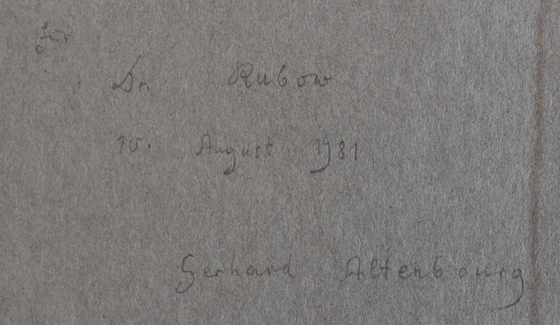 für
Dr. Rubow
10. August 1981
Gerhard Altenbourg